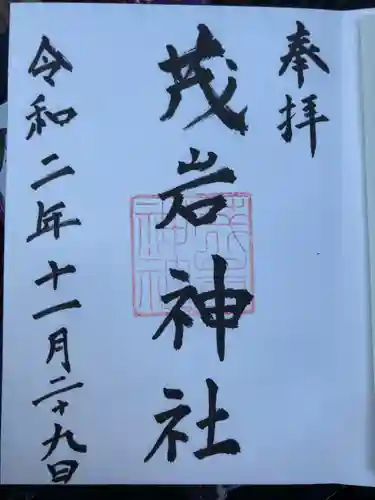 奉拝
茂岩神社
令和二年十一月二十九日
茂岩
神社